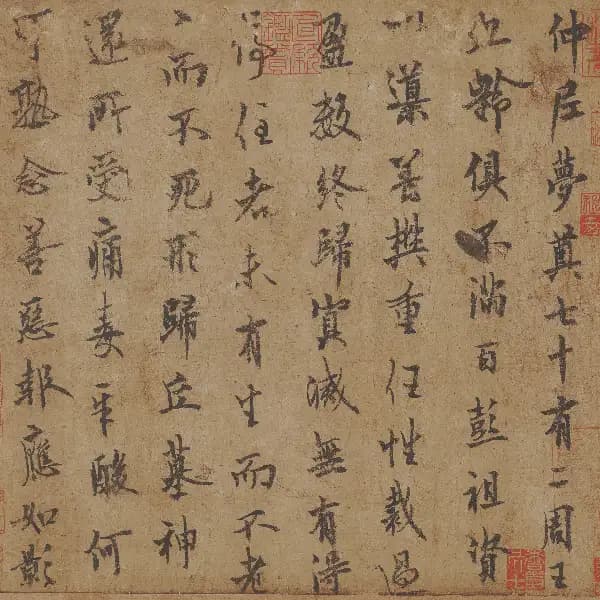 仲尼夢奠七十有二周王
九齡俱不滿百彭祖資
以導養樊重任性裁過
盈數終歸冥滅無有得
停住者未有生而不老
〻而不死形歸丘墓神
還所受痛毒辛酸何
可熟念善惡報應如影